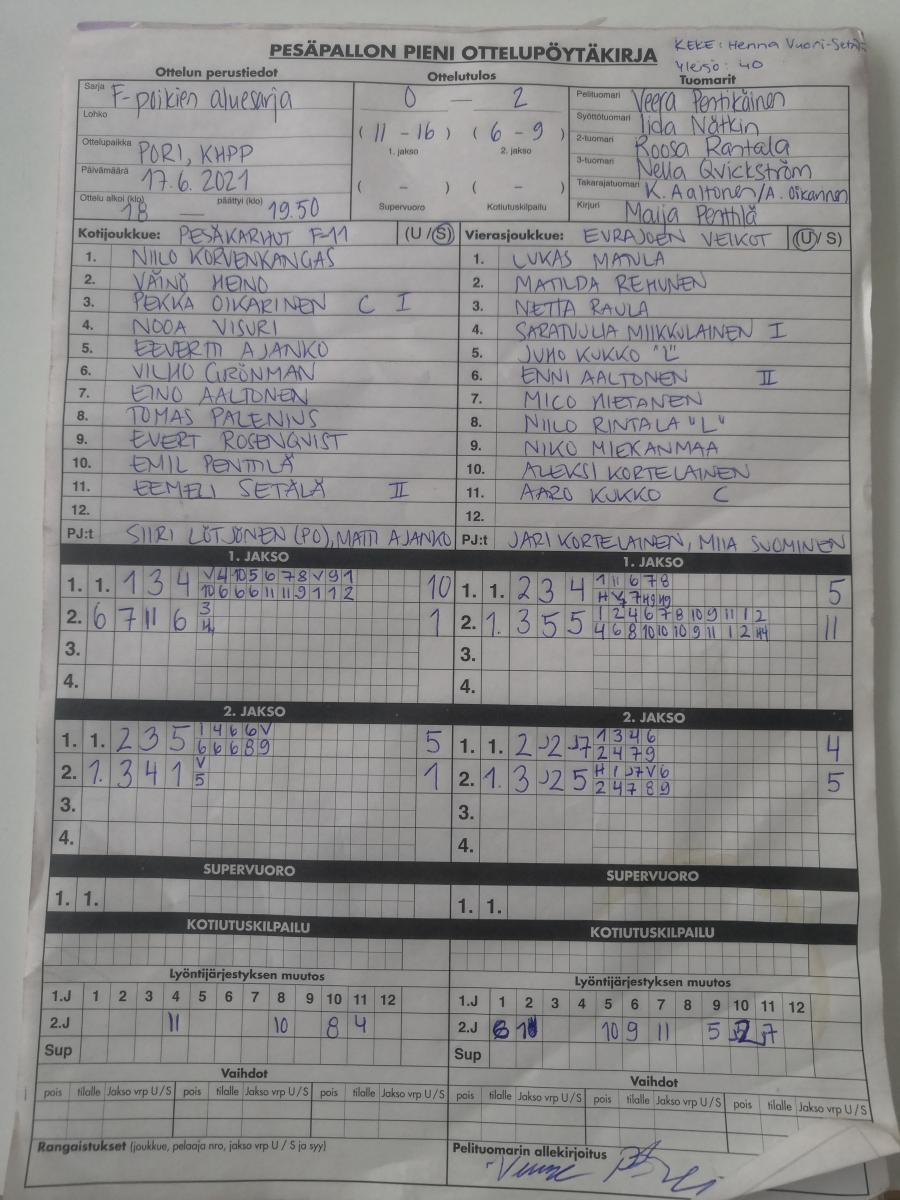 PESÄPALLON PIENI OTTELUPÖYTÄKIRJA
KEKE: Henna Vuori-Setälä
Yleisö: 40
Ottelun perustiedot
Ottelutulos
Tuomarit
Sarja F-poikien aluesarja
Lohko
Ottelupaikka PORI, KHPP
Päivämäärä 17.6. 2021
Ottelu alkoi (klo) 18 — päättyi (klo) 19.50
0 — 2
( 11 - 16 ) ( 6 - 9 )
1. jakso 2. jakso
( - ) ( - )
Supervuoro Kotiutuskilpailu
Pelituomari Veera Pentikäinen
Syöttötuomari Iida Nätkin
2-tuomari Roosa Rantala
3-tuomari Nella Qvickström
Takarajatuomari K. Aaltonen/A. Oikarinen
Kirjuri Maija Penttilä
Kotijoukkue: PESÄKARHUT F-11 (U/S)
1. NIILO KORVENKANGAS
2. VÄINÖ HEINO
3. PEKKA OIKARINEN C I
4. NOOA VISURI
5. EEVERTTI AJANKO
6. VILHO GRÖNMAN
7. EINO AALTONEN
8. TOMAS PALENIUS
9. EVERT ROSENQVIST
10. EMIL PENTTILÄ
11. EEMELI SETÄLÄ II
12.
PJ:t SIIRI LÖTJÖNEN (PO), MATTI AJANKO
Vierasjoukkue: EURAJOEN VEIKOT (U/S)
1. LUKAS MATULA
2. MATILDA REHUNEN
3. NETTA RAULA
4. SARATUULIA MIIKKULAINEN I
5. JUHO KUKKO "L"
6. ENNI AALTONEN II
7. MICO MIETANEN
8. NIILO RINTALA "L"
9. NIKO MIEKANMAA
10. ALEKSI KORTELAINEN
11. AARO KUKKO C
12.
PJ:t JARI KORTELAINEN, MIIA SUOMINEN
1. JAKSO
1. 1. 1 3 4 V 4 10 5 6 7 8 V 9 1 10
10 6 6 6 11 11 9 1 1 2
2. 6 7 11 6 3 1
3.
4.
1. JAKSO
1. 1. 2 3 4 1 11 6 7 8 5
2. 1. 3 5 5 1 2 4 6 7 8 10 9 11 1 2 11
4 6 8 10 10 10 9 11 1 2 H4
3.
4.
2. JAKSO
1. 1. 2 3 5 1 4 6 6 V 5
6 6 6 8 9
2. 1. 3 4 1 V 1
5
3.
4.
2. JAKSO
1. 1. 2 J2 J7 1 3 4 6 4
2 4 7 9
2. 1. 3 J2 5 H 1 J7 V 6 5
2 4 7 8 9
3.
4.
SUPERVUORO
1. 1.
SUPERVUORO
1. 1.
KOTIUTUSKILPAILU
KOTIUTUSKILPAILU
Lyöntijärjestyksen muutos
1.J 1 2 3 4 5 6 7 8 9 10 11 12
2.J 11 10 8 4
Sup
Lyöntijärjestyksen muutos
1.J 1 2 3 4 5 6 7 8 9 10 11 12
2.J 10 9 11 5 J7
Sup
Vaihdot
pois tilalle Jakso vrp U/S pois tilalle Jakso vrp U/S pois tilalle Jakso vrp U/S
Vaihdot
pois tilalle Jakso vrp U/S pois tilalle Jakso vrp U/S pois tilalle Jakso vrp U/S
Rangaistukset (joukkue, pelaaja nro, jakso vrp U / S ja syy)
Pelituomarin allekirjoitus